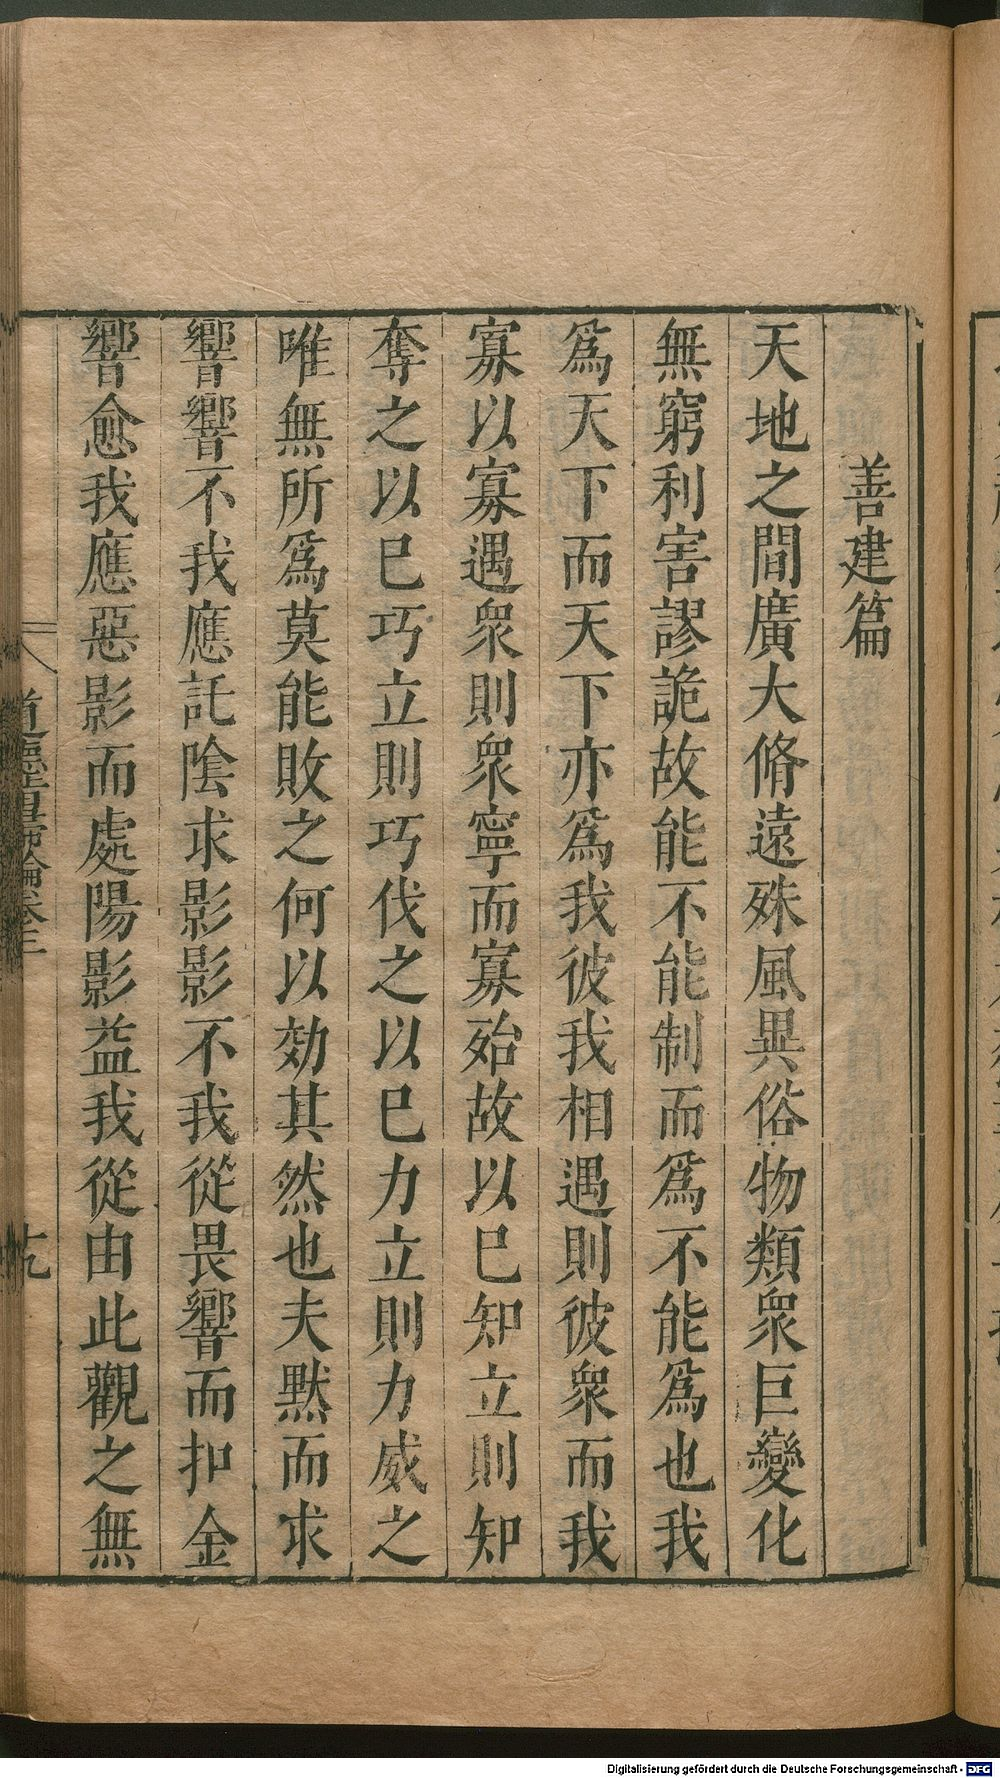 善建篇
天地之間廣大脩遠殊風異俗物類衆巨變化
無窮利害謬詭故能不能制而爲不能爲也我
爲天下而天下亦爲我彼我相遇則彼衆而我
寡以寡遇衆則衆寧而寡殆故以巳知立則知
奪之以巳巧立則巧伐之以巳力立則力威之
唯無所爲莫能敗之何以効其然也夫黙而求
響響不我應託陰求影影不我從畏響而扣金
響愈我應惡影而處陽影益我從由此觀之無
道德眞君論卷三
Digitalisierung gefördert durch die Deutsche Forschungsgemeinschaft - DFG